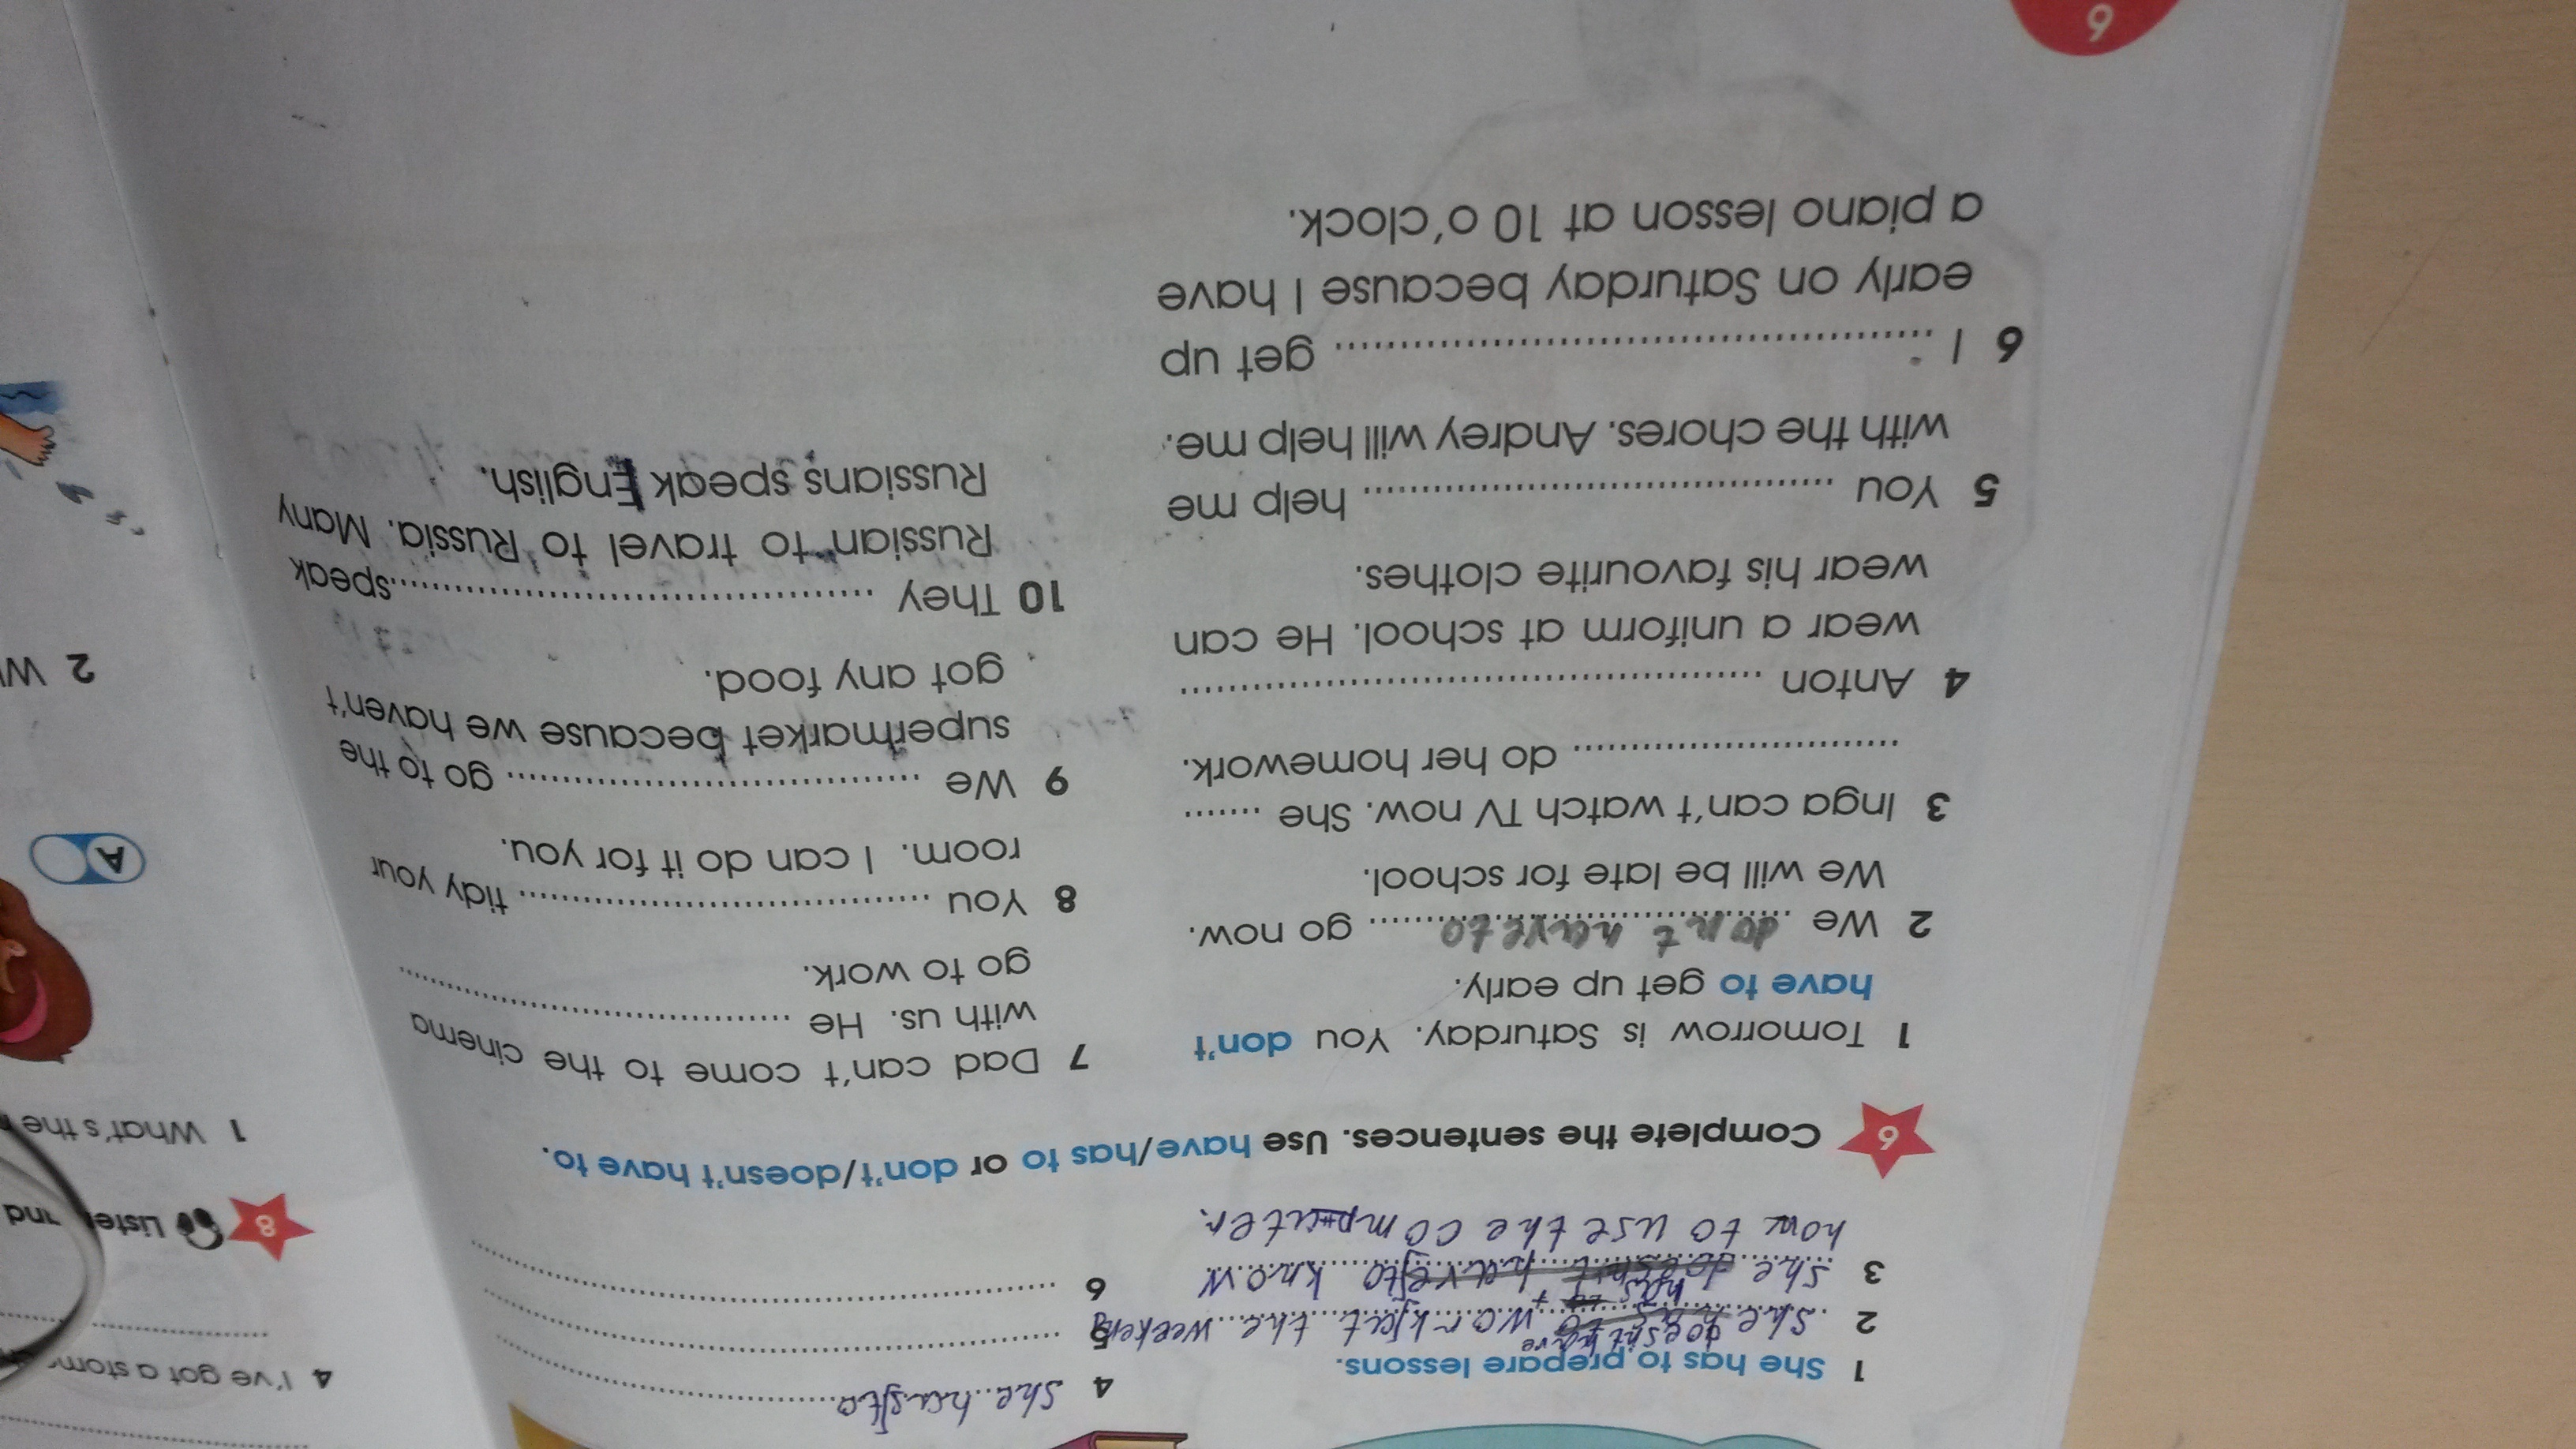 1 She has to prepare lessons.
2 She doesn't have to work at the weekend
3 She has to know
how to use the computer.
4 She has to
5
6
6 Complete the sentences. Use have/has to or don't/doesn't have to.
1 Tomorrow is Saturday. You don't
have to get up early.
2 We don't have to go now.
We will be late for school.
3 Inga can't watch TV now. She ........
.............................. do her homework.
4 Anton ..................................................
wear a uniform at school. He can
wear his favourite clothes.
5 You .......................................... help me
with the chores. Andrey will help me.
6 I .................................................... get up
early on Saturday because I have
a piano lesson at 10 o'clock.
7 Dad can't come to the cinema
with us. He ........................................
go to work.
8 You .................................... tidy your
room. I can do it for you.
9 We .................................... go to the
supermarket because we haven't
got any food.
10 They ..........................................speak
Russian to travel to Russia. Many
Russians speak English.
6
4 I've got a
8
1 What's the
A
2